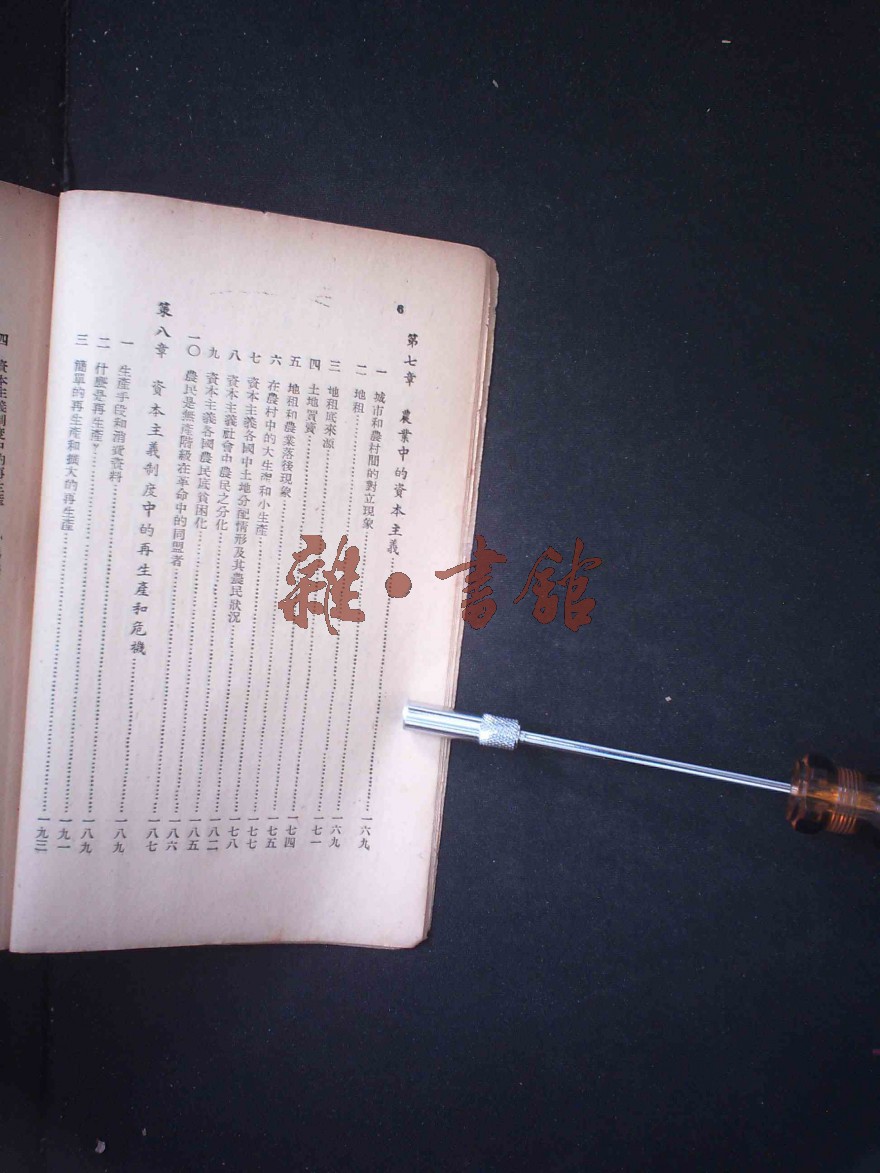 6
第七章 農業中的資本主義……一六九
一 城市和農村間的對立現象……一六九
二 地租……一七一
三 地租底來源……一七四
四 土地買賣……一七五
五 地租和農業落後現象……一七七
六 在農村中的大生產和小生產……一七八
七 資本主義各國中土地分配情形及其農民狀況……一八二
八 資本主義社會中農民之分化……一八五
九 資本主義各國農民底貧困化……一八六
一〇 農民是無產階級在革命中的同盟者……一八七
第八章 資本主義制度中的再生產和危機……一八九
一 生產手段和消費資料……一八九
二 什麼是再生產?……一九一
三 簡單的再生產和擴大的再生產……一九三
四 資本主義制度中的再生產
雜·書館